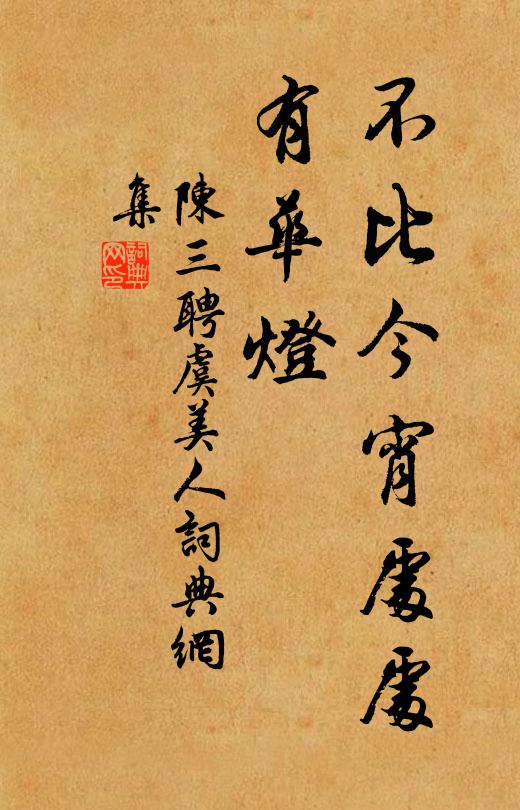 不比今宵處處
有華燈
陳三聘虞美人詞典網
集
詞典
网印